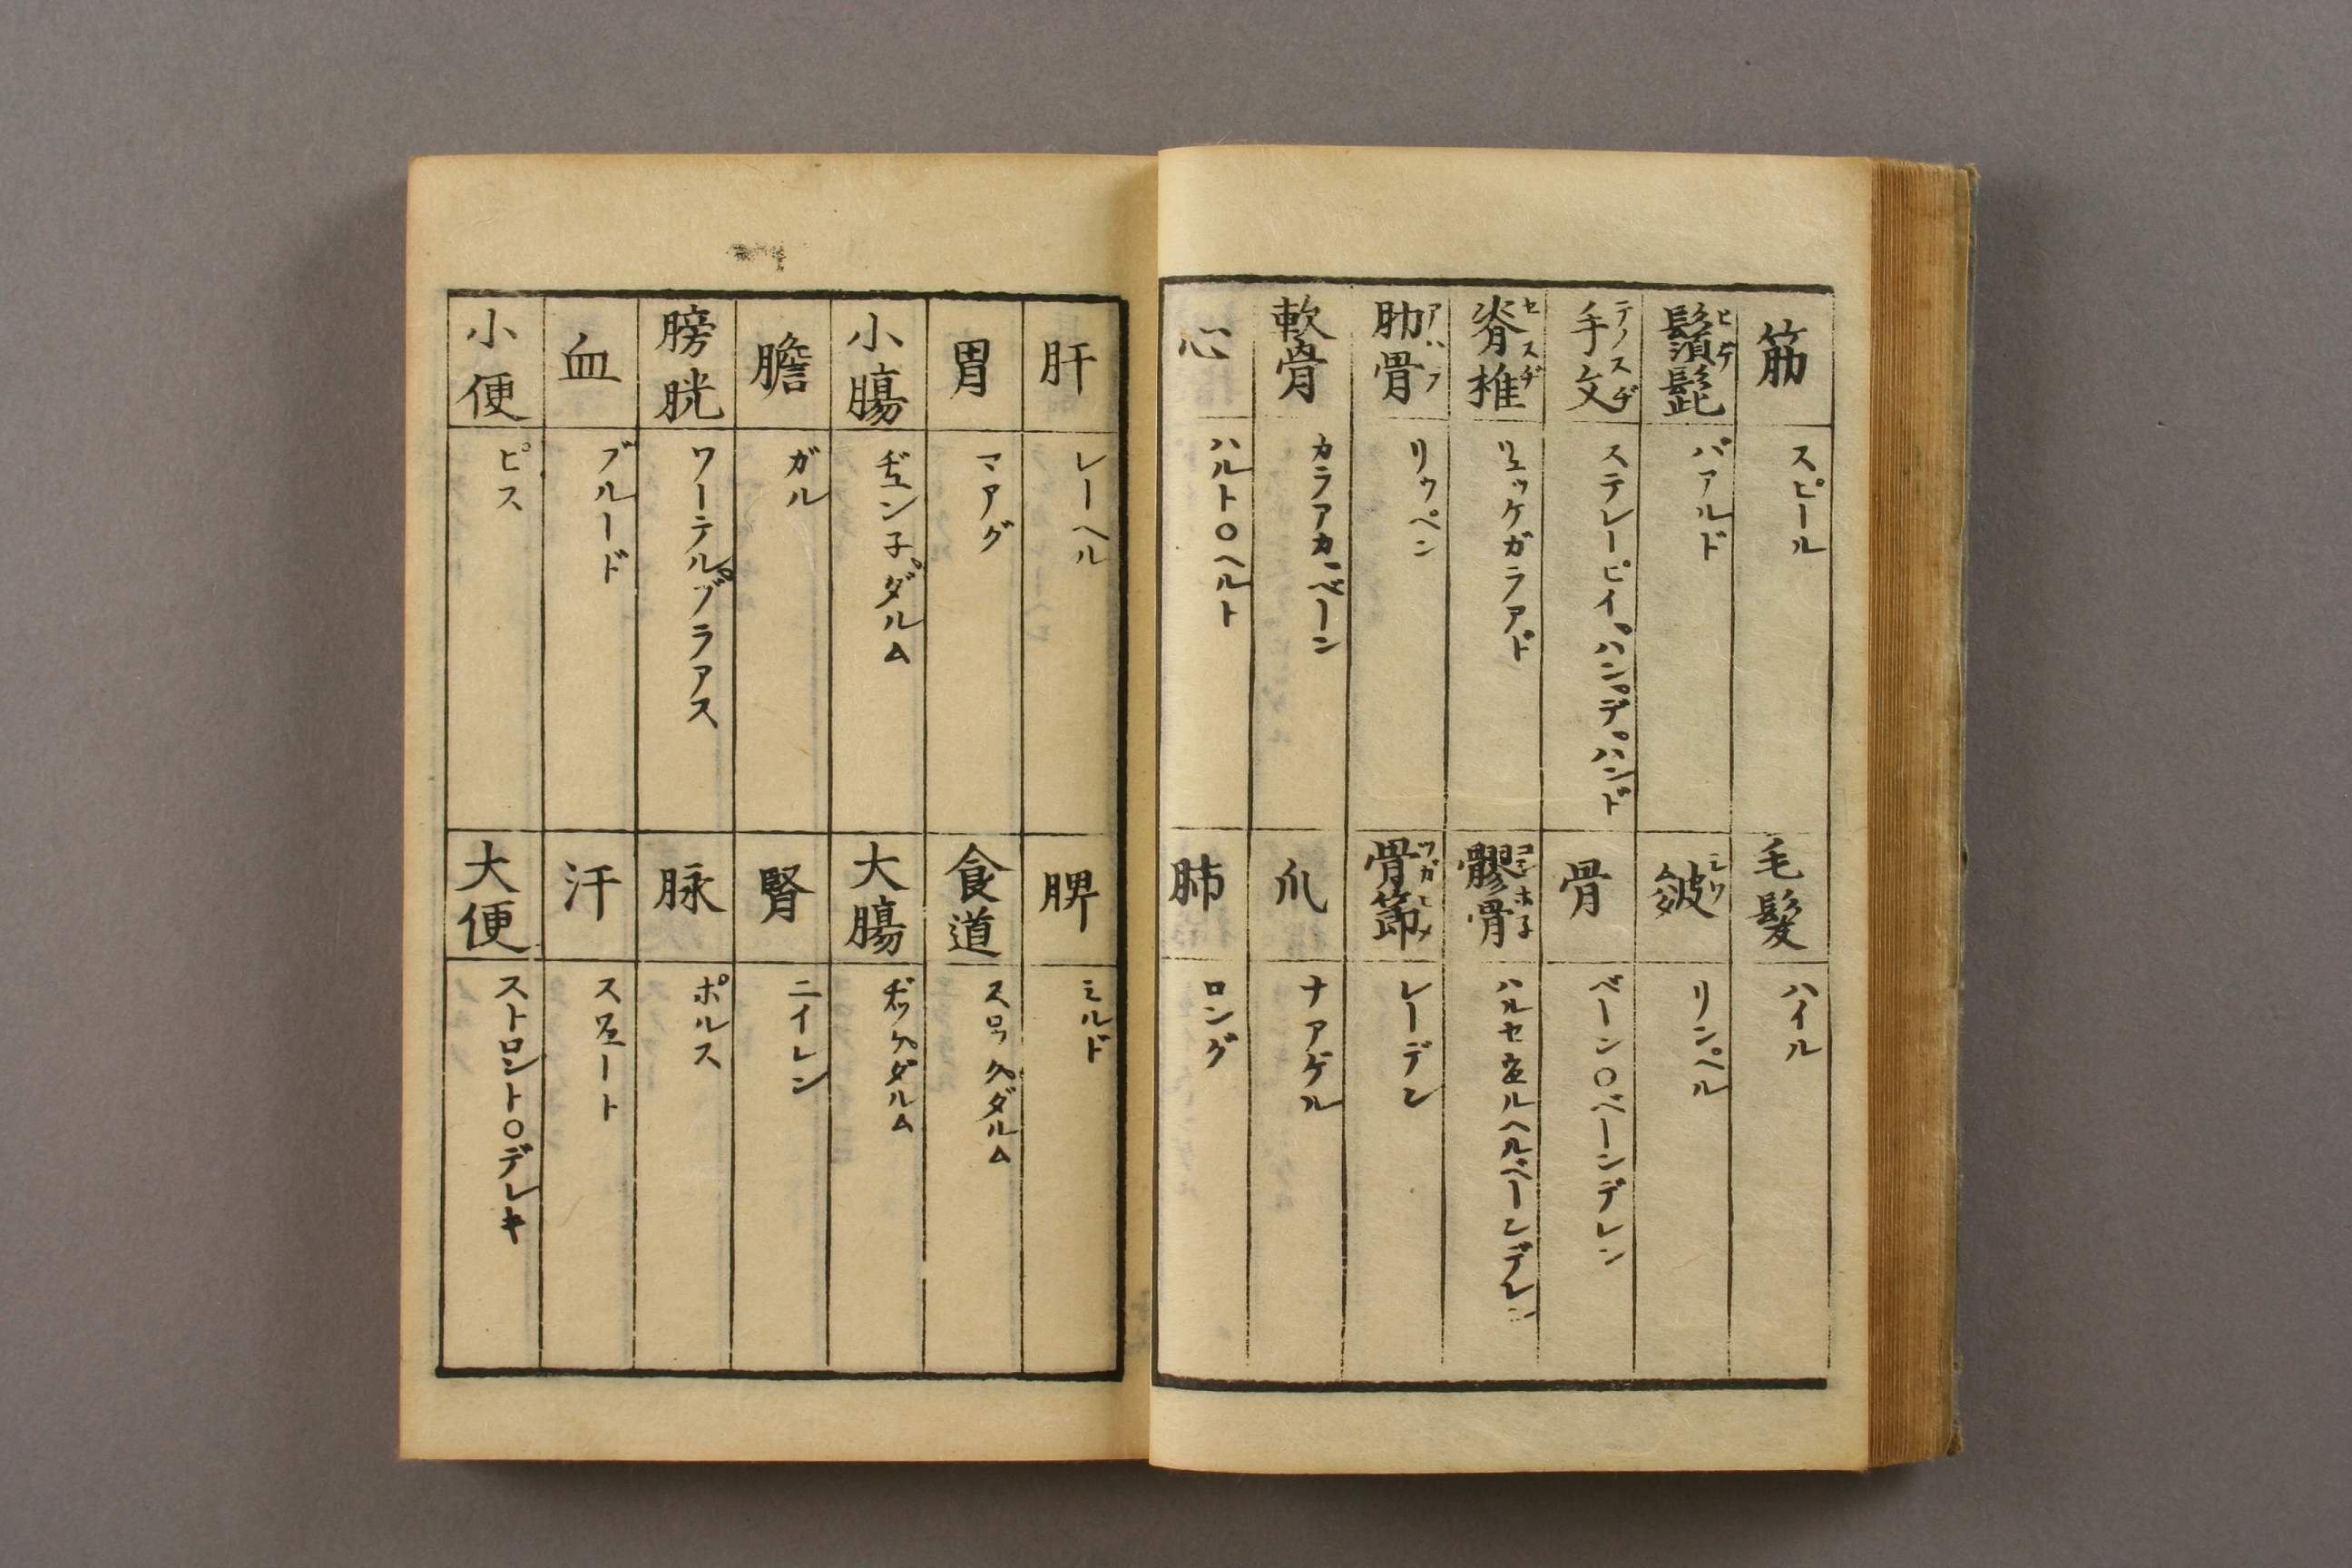 筋 スピール
毛髪 ハイル
鬚髭 ヒゲ バアルド
皴 シワ リンペル
手文 テノスヂ ステレーピイ゚ハン゚デ゚ハンド
骨 ベーン〇ベーンデレン
脊椎 セスヂ リュッケガラアド
髎骨 コシホ子 ハルセ ルヘルベーンデレン
肋骨 アバラ リッペン
骨節 ツガヒメ レーデン
軟骨 カラアカ゚ベーン
爪 ナアゲル
心 ハルト〇ヘルト
肺 ロング
肝 レーヘル
脾 ミルド
胃 マアグ
食道 スロック゚ダルム
小膓 ヂュン子゚ダルム
大膓 ヂッケ゚ダルム
膽 ガル
腎 ニイレン
膀胱 ワーテル゚ブラアス
脉 ポルス
血 ブルード
汗 スヱート
小便 ピス
大便 ストロント〇デレキ